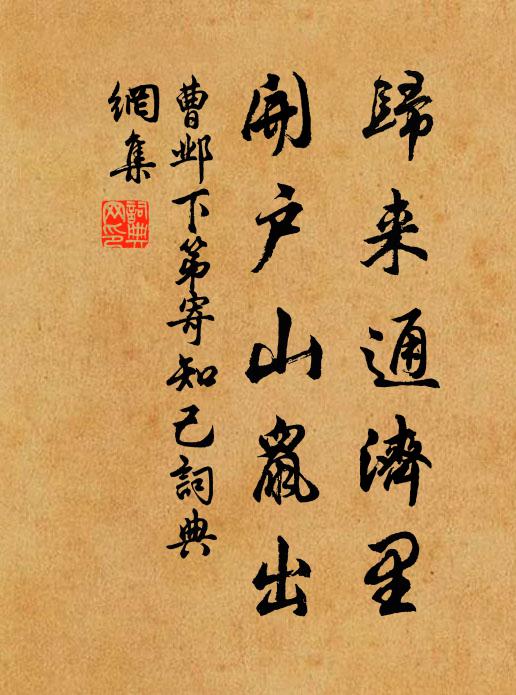 歸来通濟里
開户山鼠出
曹邺下第寄知己詞典
網集
詞典
网印